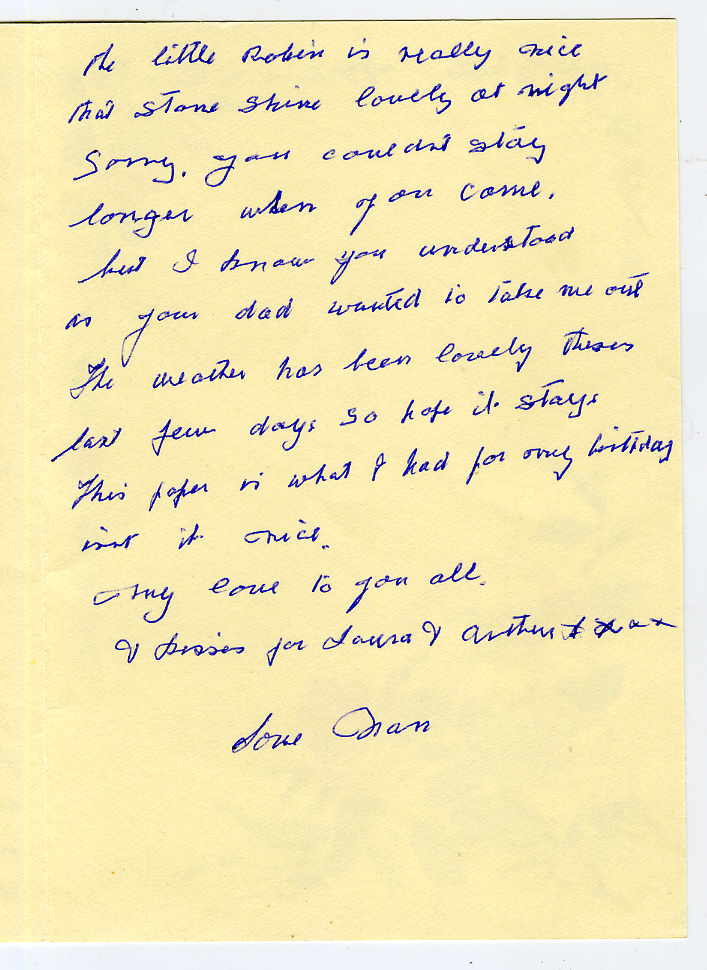 the little Robin is really nice
that stone shine lovely at night
Sorry, you couldnt stay
longer when you come.
but I know you understood
as your dad wanted to take me out
The weather has been lovely theses
last few days so hope it stays
This paper is what I had for my birthday
isnt it nice.
my love to you all.
& kisses for Laura & Arthur x x x x
Love Nan